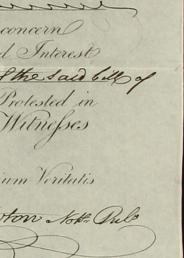 concern
d Interest
of the said bill of
Protested in
Witnesses
ium Veritatis
ton Not. Pub